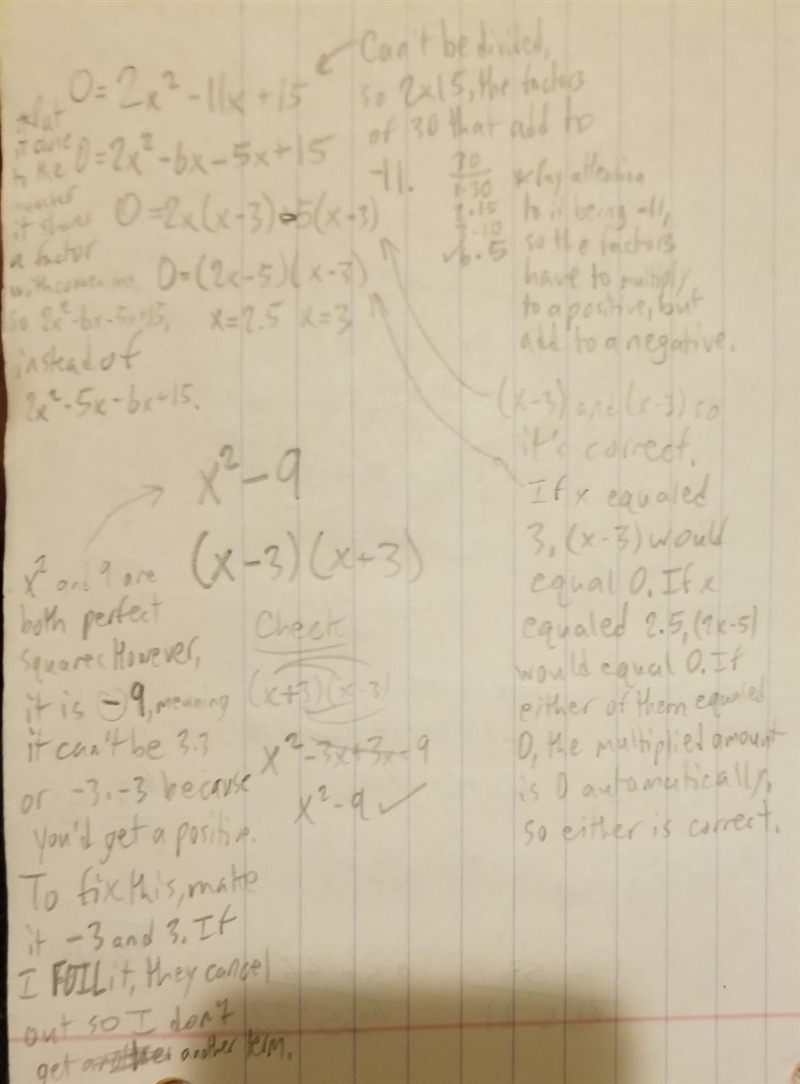 0=2x²-11x+15
0=2x²-6x-5x+15
0=2x(x-3)-5(x-3)
0=(2x-5)(x-3)
x=2.5 x=3
Can't be divided,
so 2x15, the factors
of 30 that add to
-11.
30
1·30
2·15
3·10
6·5
*Pay attention
to it being -11,
so the factors
have to multiply
to a positive, but
add to a negative.
*Put
it
the
number
it shares
a factor
with
so 2x²-6x-5x+15,
instead of
2x²-5x-6x+15.
(x-3) and (x-3) so
it's correct.
If x equaled
3, (x-3) would
equal 0. If x
equaled 2.5, (2x-5)
would equal 0. If
either of them equaled
0, the multiplied amount
is 0 automatically,
so either is correct.
x²-9
(x-3)(x+3)
x² and 9 are
both perfect
squares. However,
it is -9, meaning
it can't be 3·3
or -3·-3 because
you'd get a positive.
To fix this, make
it -3 and 3. If
I FOIL it, they cancel
out so I don't
get another term.
Check
(x+3)(x-3)
x²-3x+3x-9
x²-9 ✓